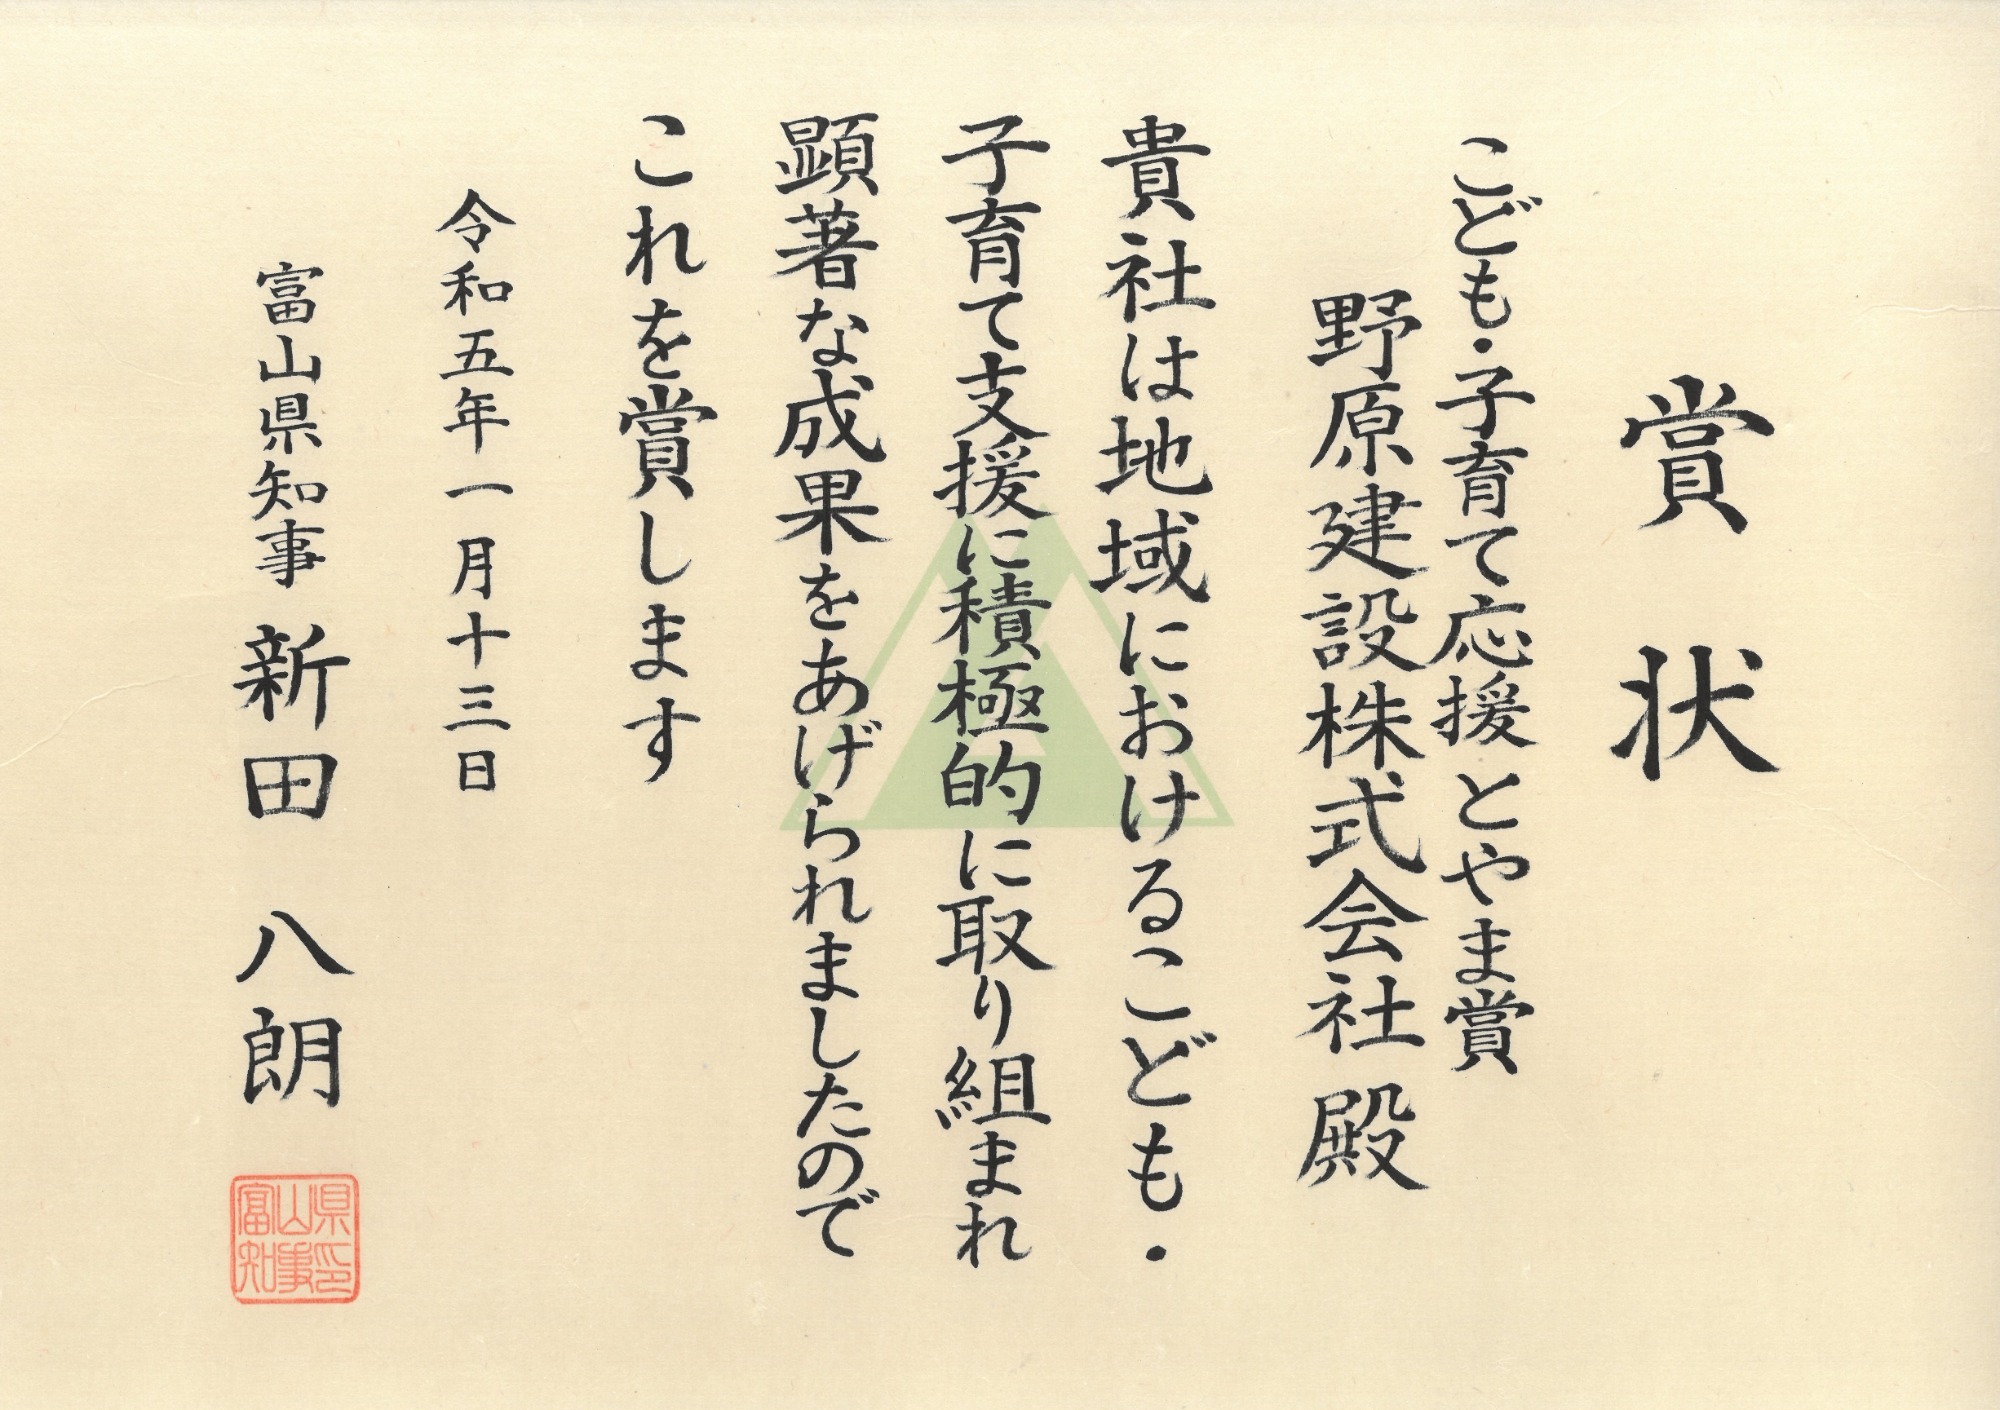 賞状
こども・子育て応援とやま賞
野原建設株式会社殿
貴社は地域におけるこども・
子育て支援に積極的に取り組まれ
顕著な成果をあげられましたので
これを賞します
令和五年一月十三日
富山県知事 新田八朗
富山県知事印